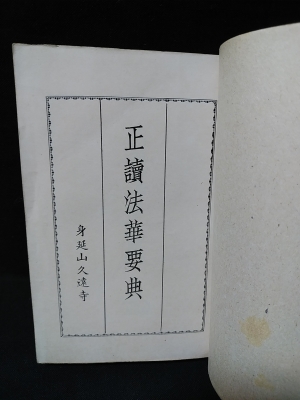 正讀法華要典
身延山久遠寺